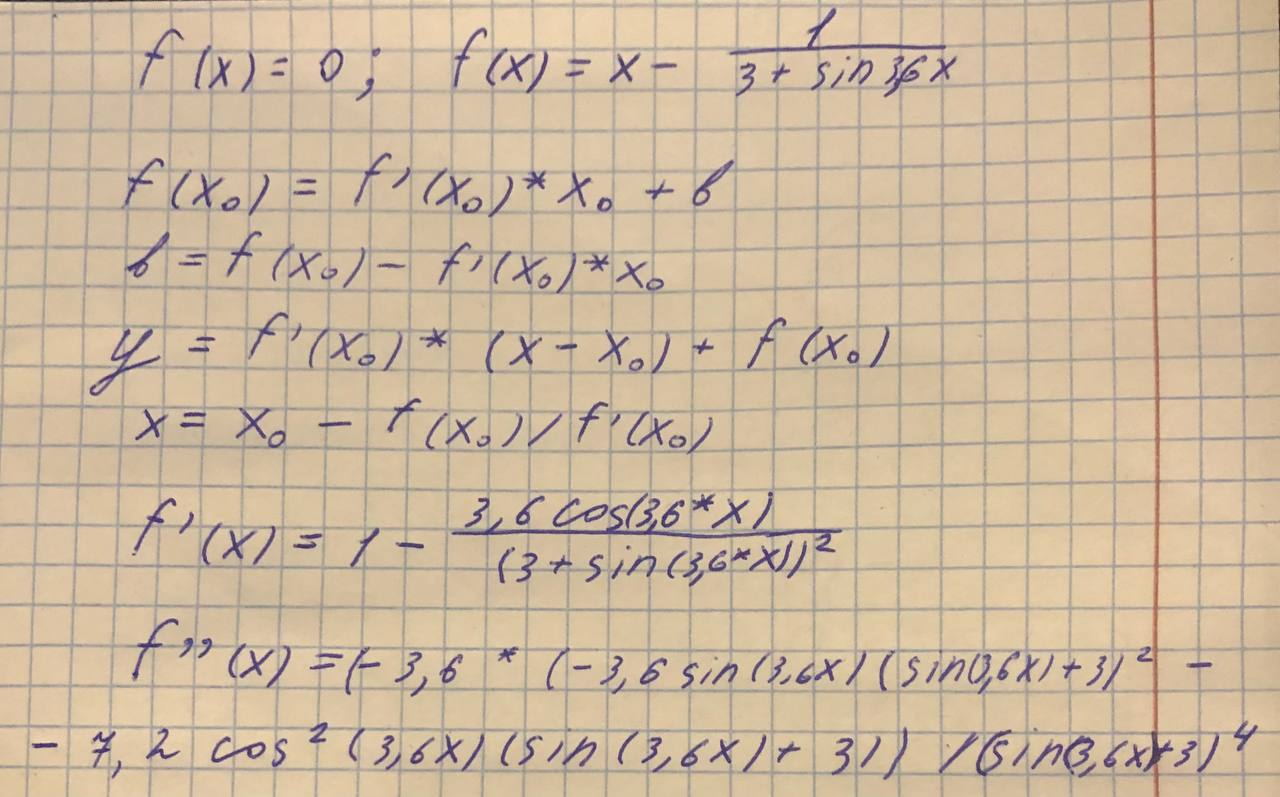 f(x) = 0; f(x) = x - 1/(3 + sin 3,6x)
f(x₀) = f'(x₀) * x₀ + b
b = f(x₀) - f'(x₀) * x₀
y = f'(x₀) * (x - x₀) + f(x₀)
x = x₀ - f(x₀) / f'(x₀)
f'(x) = 1 - 3,6 cos(3,6*x)/(3 + sin(3,6*x))²
f''(x) = (-3,6 * (-3,6 sin(3,6x) (sin(3,6x) + 3)² -
- 7,2 cos² (3,6x) (sin (3,6x) + 3)) / (sin(3,6x)+3)⁴